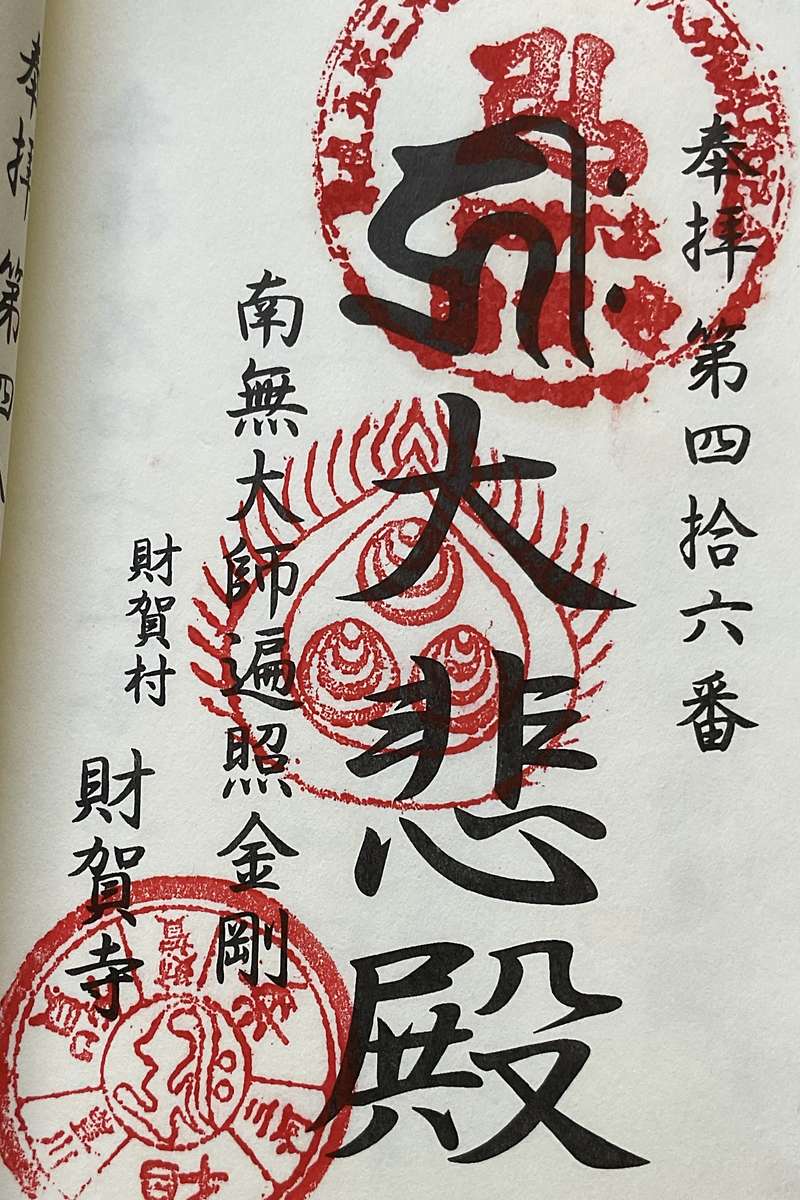 奉拝 第四拾六番
大悲殿
南無大師遍照金剛
財賀村
財賀寺
奉拝 第四